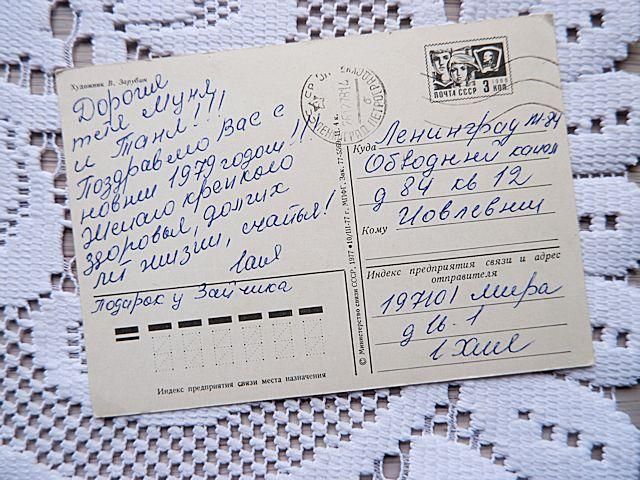 Художник В. Зарубин
Дорогие
тетя Муня
и Таня!!!
Поздравляю Вас с
новым 1979 годом!!
Желаю крепкого
здоровья, долгих
лет жизни, счастья!
Подарок у Зайчика
Индекс предприятия связи места назначения
© Министерство связи СССР, 1977 • 10/III-77 г. МПФГ. Зак. 77-5558. Ц. 4 к.
ПОЧТА СССР 3 КОП.
1966
Куда Ленинград
Обводный канал
д 84 кв 12
Кому Иовлевым
Индекс предприятия связи и адрес
отправителя
197101 Мира